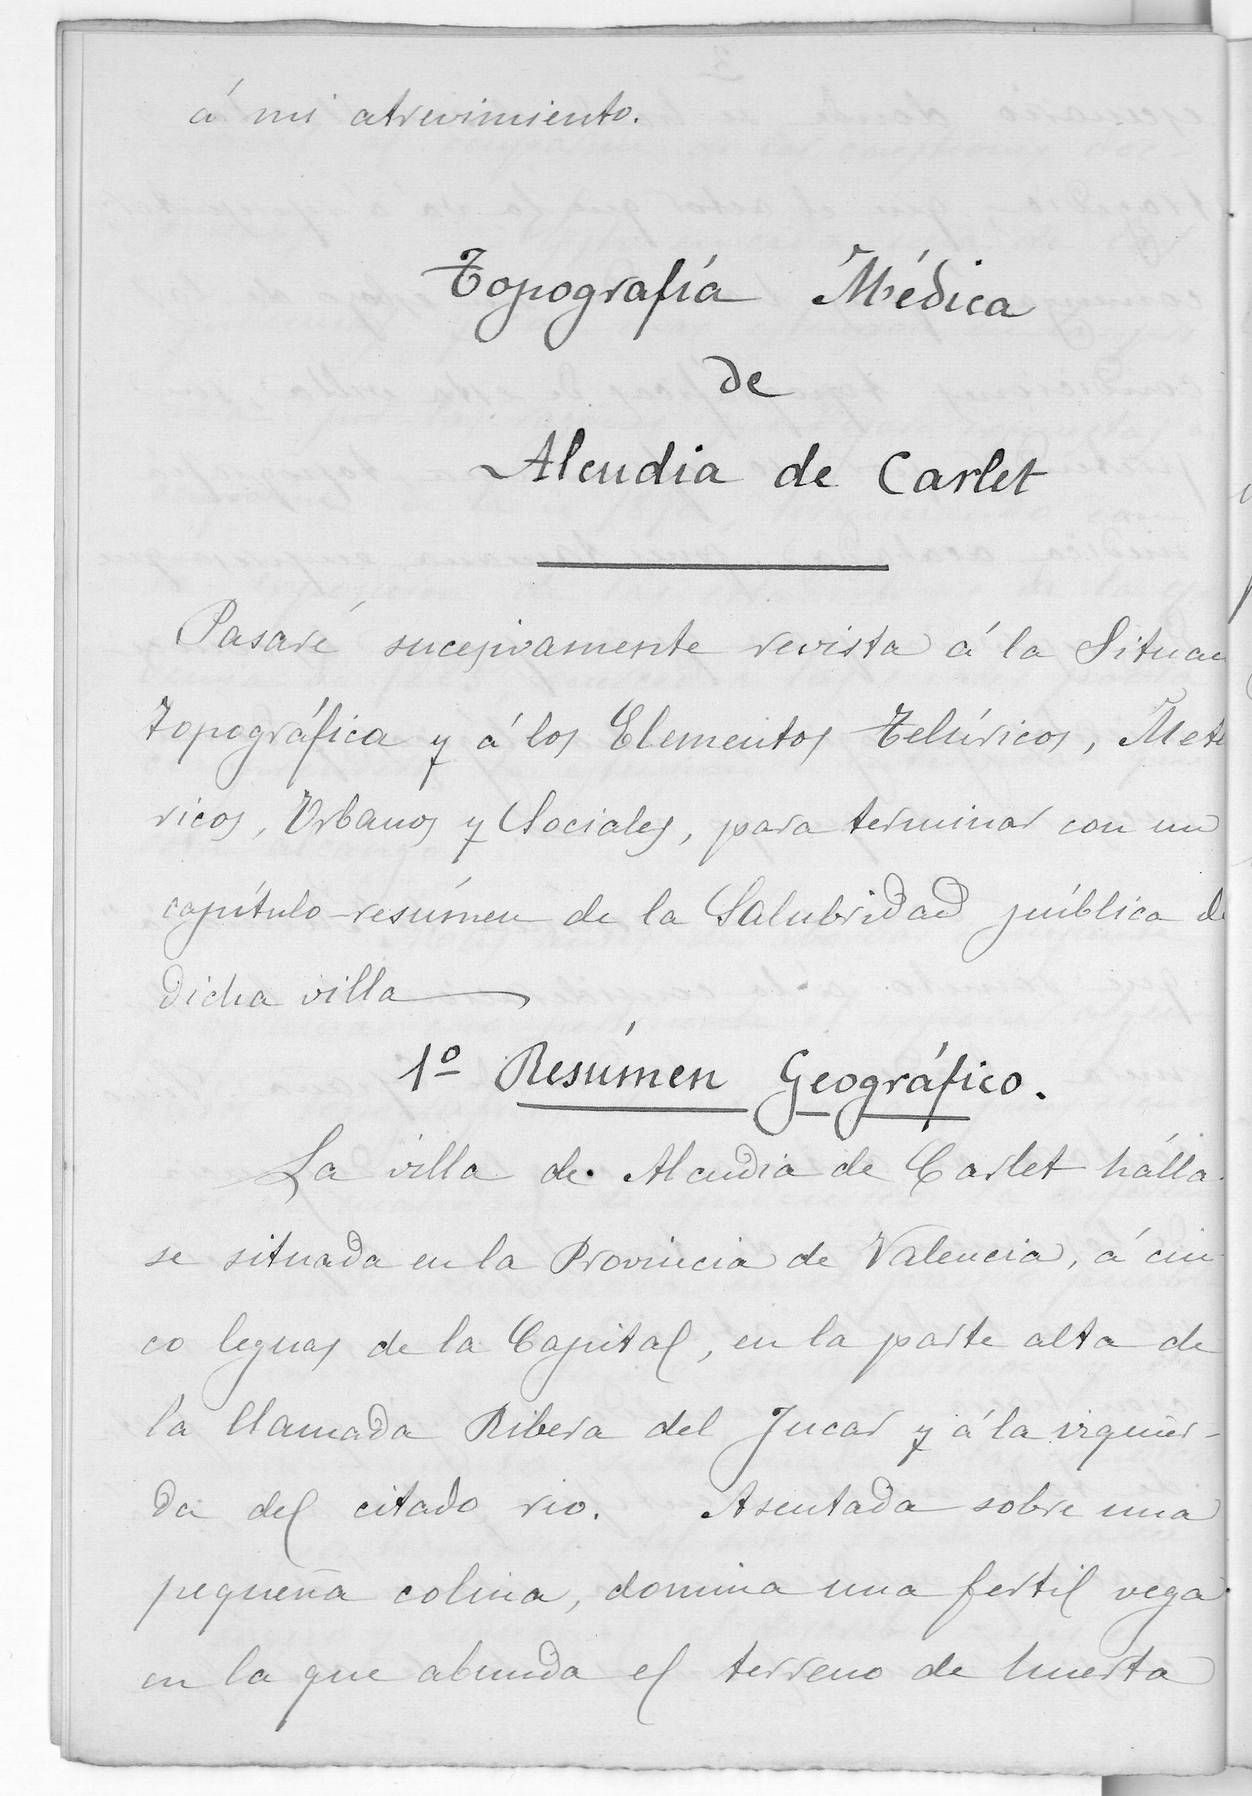 á mi atrevimiento.
Topografía Médica
de
Alcudia de Carlet
Pasaré sucesivamente revista á la Situac
topográfica y á los Elementos Telúricos, Mete
ricos, Urbanos y Sociales, para terminar con un
capítulo-resúmen de la Salubridad pública de
dicha villa
1º Resúmen Geográfico.
La villa de Alcudia de Carlet hálla
se situada en la Provincia de Valencia, á cin
co leguas de la Capital, en la parte alta de
la llamada Ribera del Jucar y á la izquier-
da del citado rio. Asentada sobre una
pequeña colina, domina una fertil vega
en la que abunda el terreno de huerta